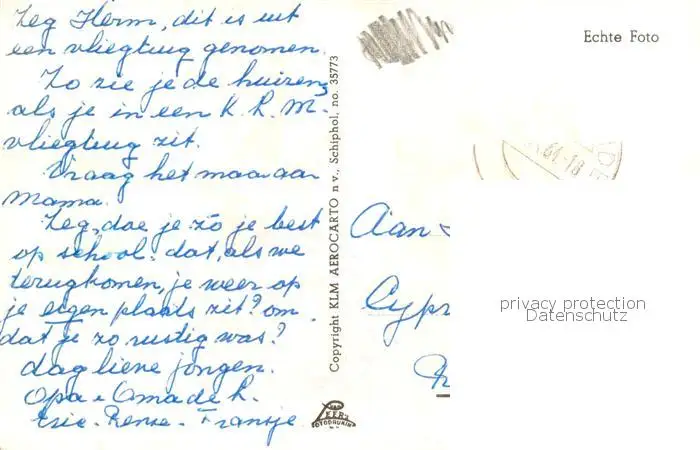 Zeg Herm, dit is uit
een vliegtuig genomen.
Zo zie je de huizen,
als je in een K.L.M-
vliegtuig zit.
Vraag het maar aan
Mama.
Zeg, doe je zó je best
op school. dat, als we
terugkomen, je weer op
je eigen plaats zit? om
dat je zo rustig was?
dag lieve jongen.
Opa - Oma de L.
- Fransje
Copyright KLM AEROCARTO n.v., Schiphol, no. 35773
Echte Foto
61-18
Aan
Cypr
privacy protection
Datenschutz